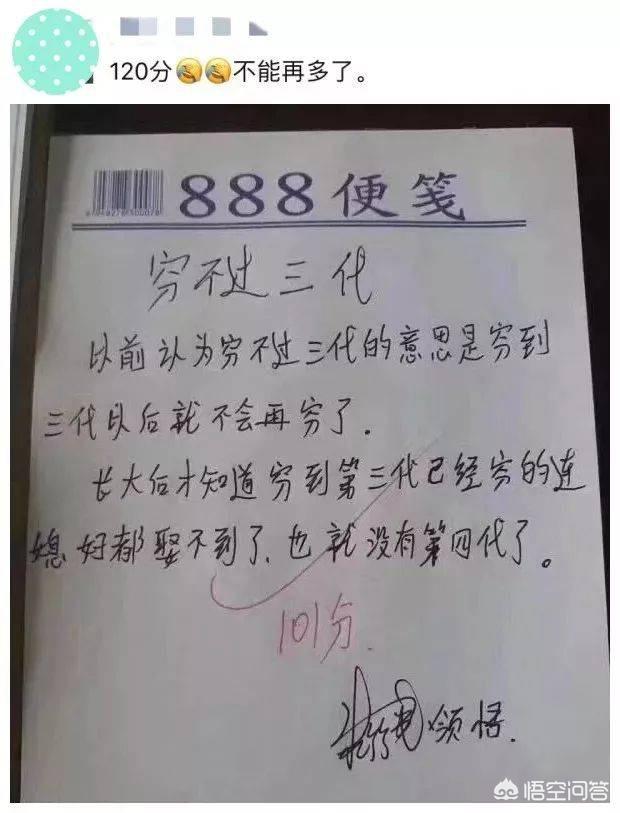 120分🤣🤣不能再多了。
888便笺
穷不过三代
以前认为穷不过三代的意思是穷到
三代以后就不会再穷了.
长大后才知道穷到第三代已经穷的连
媳好都娶不到了、也就没有第四代了。
101分.
领悟.
悟空问答